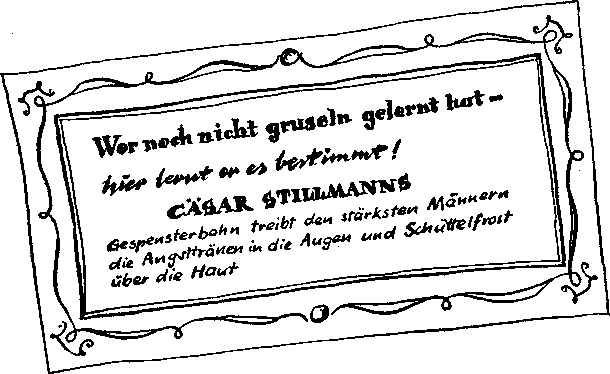 Wer noch nicht gruseln gelernt hat –
hier lernt er es bestimmt!
CÄSAR STILLMANNS
Gespensterbahn treibt den stärksten Männern
die Angsttränen in die Augen und Schüttelfrost
über die Haut